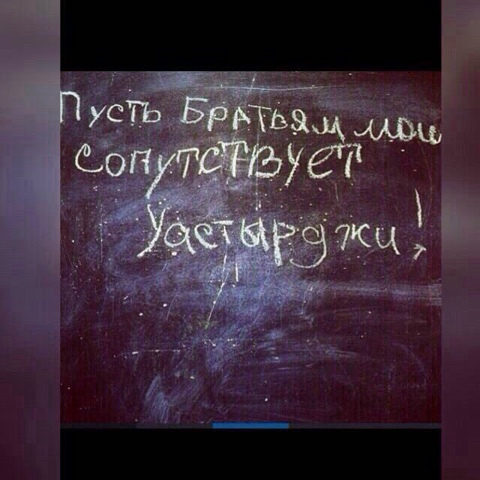 Пусть Братьям мои
сопутствует
Уастырджи!